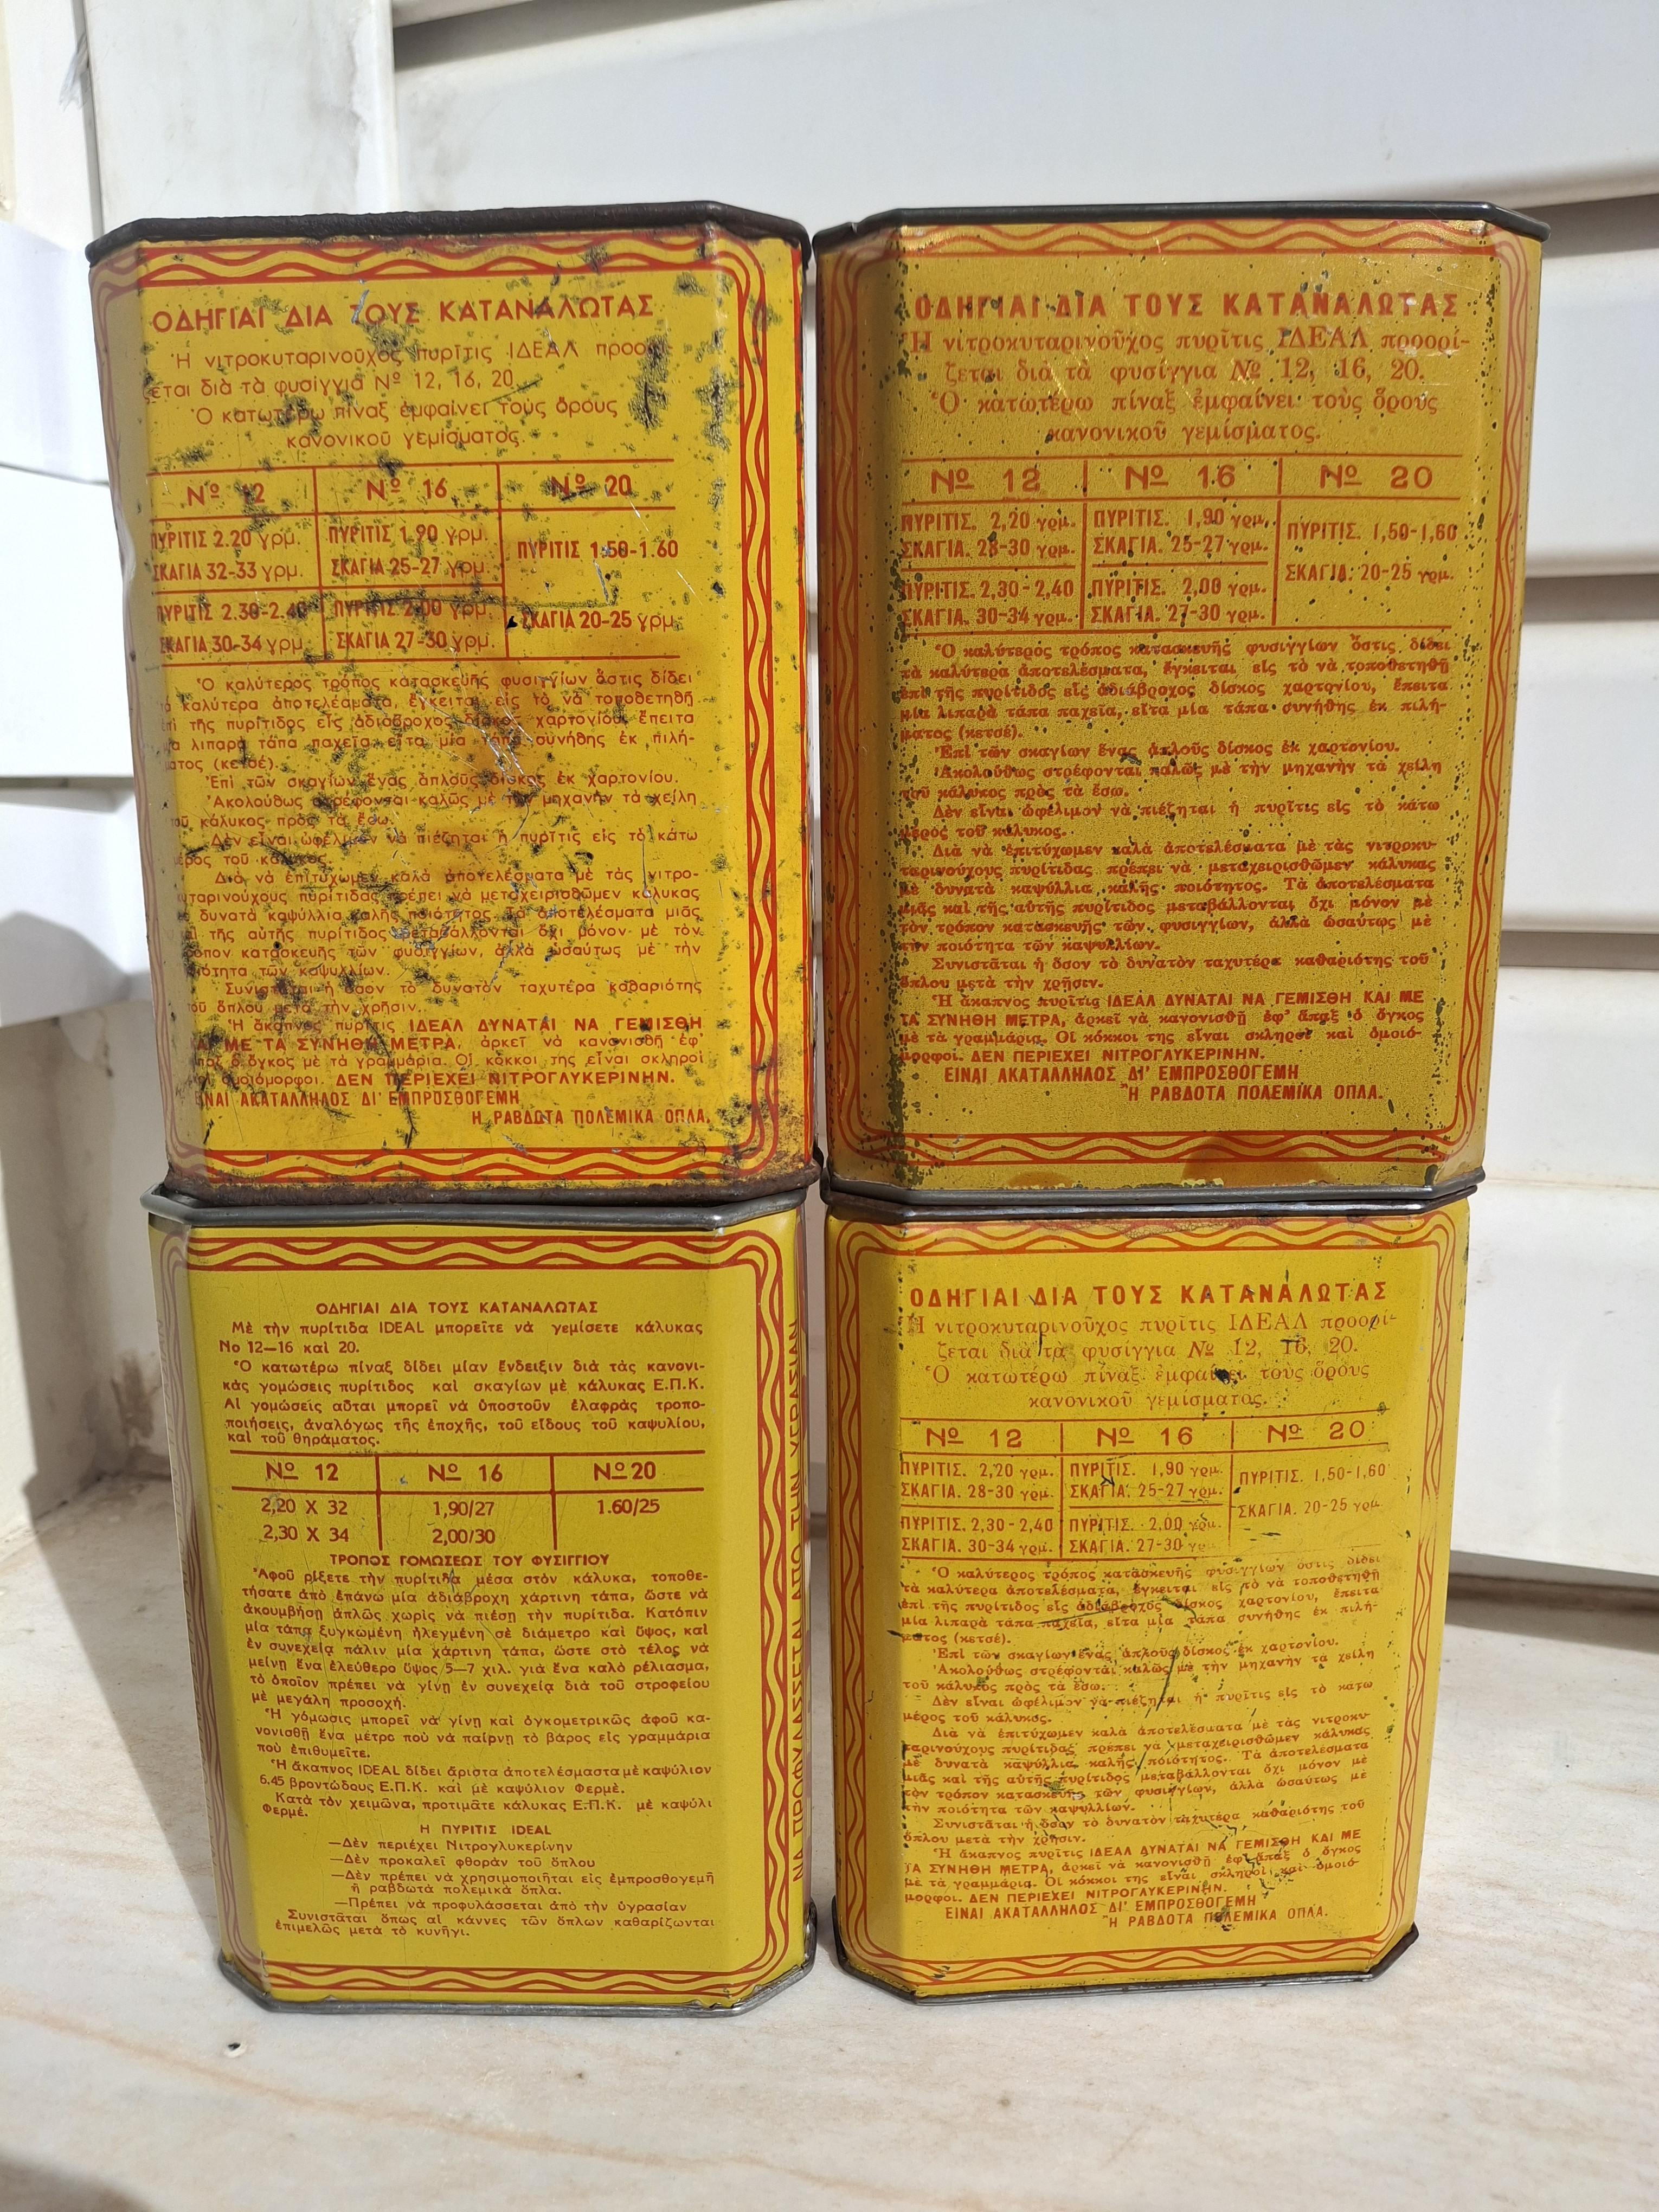 ΟΔΗΓΙΑΙ ΔΙΑ ΤΟΥΣ ΚΑΤΑΝΑΛΩΤΑΣ
Ἡ νιτροκυταρινοῦχος πυρῖτις ΙΔΕΑΛ
ζεται διὰ τὰ φυσίγγια Νº 12, 16, 20.
Ὁ κατωτέρω πίναξ ἐμφαίνει τοὺς ὅρους
κανονικοῦ γεμίσματος.
Νº 12 Νº 16 Νº 20
ΠΥΡΙΤΙΣ 2.20 γρμ. ΠΥΡΙΤΙΣ 1.90 γρμ. ΠΥΡΙΤΙΣ 1.50-1.60
ΣΚΑΓΙΑ 32-33 γρμ. ΣΚΑΓΙΑ 25-27 γρμ.
ΠΥΡΙΤΙΣ 2.30-2.40 ΠΥΡΙΤΙΣ 2.00 γρμ. ΣΚΑΓΙΑ 20-25 γρμ.
ΣΚΑΓΙΑ 30-34 γρμ. ΣΚΑΓΙΑ 27-30 γρμ.
Ὁ καλύτερος τρόπος κατασκευῆς φυσιγγίων ὅστις δίδει
καλύτερα ἀποτελέσματα, ἔγκειται εἰς τὸ νὰ τοποθετηθῇ
τῆς πυρίτιδος εἰς ἀδιάβροχος δίσκος χαρτονίου, ἔπειτα
λιπαρὰ τάπα παχεῖα, εἶτα μία τάπα συνήθης ἐκ πιλή-
(κετσέ).
Ἐπὶ τῶν σκαγίων ἕνας ἁπλοῦς δίσκος ἐκ χαρτονίου.
Ἀκολούθως στρέφονται καλῶς μὲ τὴν μηχανὴν τὰ χείλη
κάλυκος πρὸς τὰ ἔσω.
Δὲν εἶναι ὠφέλιμον νὰ πιέζηται ἡ πυρῖτις εἰς τὸ κάτω
τοῦ κάλυκος.
Διὰ νὰ ἐπιτύχωμεν καλὰ ἀποτελέσματα μὲ τὰς νιτρο-
πυρίτιδας πρέπει νὰ μεταχειρισθῶμεν κάλυκας
δυνατὰ καψύλλια καλῆς ποιότητος. Τὰ ἀποτελέσματα μιᾶς
τῆς αὐτῆς πυρίτιδος μεταβάλλονται ὄχι μόνον μὲ τὸν
κατασκευῆς τῶν φυσιγγίων, ἀλλὰ ὡσαύτως μὲ τὴν
τῶν καψυλλίων.
Συνιστᾶται ἡ ὅσον τὸ δυνατὸν ταχυτέρα καθαριότης
ὅπλου μετὰ τὴν χρῆσιν.
Ἡ ἄκαπνος πυρῖτις ΙΔΕΑΛ ΔΥΝΑΤΑΙ ΝΑ ΓΕΜΙΣΘΗ
ΜΕ ΤΑ ΣΥΝΗΘΗ ΜΕΤΡΑ, ἀρκεῖ νὰ κανονισθῇ ἐφ'
ὁ ὄγκος μὲ τὰ γραμμάρια. Οἱ κόκκοι της εἶναι σκληροὶ
ὁμοιόμορφοι. ΔΕΝ ΠΕΡΙΕΧΕΙ ΝΙΤΡΟΓΛΥΚΕΡΙΝΗΝ.
ΑΚΑΤΑΛΛΗΛΟΣ ΔΙ' ΕΜΠΡΟΣΘΟΓΕΜΗ
Η ΡΑΒΔΩΤΑ ΠΟΛΕΜΙΚΑ ΟΠΛΑ.
ΟΔΗΓΙΑΙ ΔΙΑ ΤΟΥΣ ΚΑΤΑΝΑΛΩΤΑΣ
Ἡ νιτροκυταρινοῦχος πυρῖτις ΙΔΕΑΛ προορί-
ζεται διὰ τὰ φυσίγγια Νº 12, 16, 20.
Ὁ κατωτέρω πίναξ ἐμφαίνει τοὺς ὅρους
κανονικοῦ γεμίσματος.
Νº 12 Νº 16 Νº 20
ΠΥΡΙΤΙΣ. 2,20 γρμ. ΠΥΡΙΤΙΣ. 1,90 γρμ. ΠΥΡΙΤΙΣ. 1,50-1,60
ΣΚΑΓΙΑ. 28-30 γρμ. ΣΚΑΓΙΑ. 25-27 γρμ.
ΠΥΡΙΤΙΣ. 2,30-2,40 ΠΥΡΙΤΙΣ. 2,00 γρμ. ΣΚΑΓΙΑ. 20-25 γρμ.
ΣΚΑΓΙΑ. 30-34 γρμ. ΣΚΑΓΙΑ. 27-30 γρμ.
Ὁ καλύτερος τρόπος κατασκευῆς φυσιγγίων ὅστις δίδει
τὰ καλύτερα ἀποτελέσματα, ἔγκειται εἰς τὸ νὰ τοποθετηθῇ
ἐπὶ τῆς πυρίτιδος εἰς ἀδιάβροχος δίσκος χαρτονίου, ἔπειτα
μία λιπαρὰ τάπα παχεῖα, εἶτα μία τάπα συνήθης ἐκ πιλή-
ματος (κετσέ).
Ἐπὶ τῶν σκαγίων ἕνας ἁπλοῦς δίσκος ἐκ χαρτονίου.
Ἀκολούθως στρέφονται καλῶς μὲ τὴν μηχανὴν τὰ χείλη
τοῦ κάλυκος πρὸς τὰ ἔσω.
Δὲν εἶναι ὠφέλιμον νὰ πιέζηται ἡ πυρῖτις εἰς τὸ κάτω
μέρος τοῦ κάλυκος.
Διὰ νὰ ἐπιτύχωμεν καλὰ ἀποτελέσματα μὲ τὰς νιτροκυ-
ταρινούχους πυρίτιδας πρέπει νὰ μεταχειρισθῶμεν κάλυκας
μὲ δυνατὰ καψύλλια καλῆς ποιότητος. Τὰ ἀποτελέσματα
μιᾶς καὶ τῆς αὐτῆς πυρίτιδος μεταβάλλονται ὄχι μόνον μὲ
τὸν τρόπον κατασκευῆς τῶν φυσιγγίων, ἀλλὰ ὡσαύτως μὲ
τὴν ποιότητα τῶν καψυλλίων.
Συνιστᾶται ἡ ὅσον τὸ δυνατὸν ταχυτέρα καθαριότης τοῦ
ὅπλου μετὰ τὴν χρῆσιν.
Ἡ ἄκαπνος πυρῖτις ΙΔΕΑΛ ΔΥΝΑΤΑΙ ΝΑ ΓΕΜΙΣΘΗ ΚΑΙ ΜΕ
ΤΑ ΣΥΝΗΘΗ ΜΕΤΡΑ, ἀρκεῖ νὰ κανονισθῇ ἐφ' ἅπαξ ὁ ὄγκος
μὲ τὰ γραμμάρια. Οἱ κόκκοι της εἶναι σκληροὶ καὶ ὁμοιό-
μορφοι. ΔΕΝ ΠΕΡΙΕΧΕΙ ΝΙΤΡΟΓΛΥΚΕΡΙΝΗΝ.
ΕΙΝΑΙ ΑΚΑΤΑΛΛΗΛΟΣ ΔΙ' ΕΜΠΡΟΣΘΟΓΕΜΗ
Ἡ ΡΑΒΔΟΤΑ ΠΟΛΕΜΙΚΑ ΟΠΛΑ.
ΟΔΗΓΙΑΙ ΔΙΑ ΤΟΥΣ ΚΑΤΑΝΑΛΩΤΑΣ
Μὲ τὴν πυρίτιδα IDEAL μπορεῖτε νὰ γεμίσετε κάλυκας
Νο 12—16 καὶ 20.
Ὁ κατωτέρω πίναξ δίδει μίαν ἔνδειξιν διὰ τὰς κανονι-
κὰς γομώσεις πυρίτιδος καὶ σκαγίων μὲ κάλυκας Ε.Π.Κ.
Αἱ γομώσεις αὗται μπορεῖ νὰ ὑποστοῦν ἐλαφρὰς τροπο-
ποιήσεις, ἀναλόγως τῆς ἐποχῆς, τοῦ εἴδους τοῦ καψυλίου,
καὶ τοῦ θηράματος.
Νº 12 Νº 16 Νº 20
2,20 Χ 32 1,90/27 1.60/25
2,30 Χ 34 2,00/30
ΤΡΟΠΟΣ ΓΟΜΩΣΕΩΣ ΤΟΥ ΦΥΣΙΓΓΙΟΥ
Ἀφοῦ ρίξετε τὴν πυρίτιδα μέσα στὸν κάλυκα, τοποθε-
τήσατε ἀπὸ ἐπάνω μία ἀδιάβροχη χάρτινη τάπα, ὥστε νὰ
ἀκουμβήσῃ ἁπλῶς χωρὶς νὰ πιέσῃ τὴν πυρίτιδα. Κατόπιν
μία τάπα ξυγκωμένη ἠλεγμένη σὲ διάμετρο καὶ ὕψος, καὶ
ἐν συνεχείᾳ πάλιν μία χάρτινη τάπα, ὥστε στὸ τέλος νὰ
μείνῃ ἕνα ἐλεύθερο ὕψος 5—7 χιλ. γιὰ ἕνα καλὸ ρέλιασμα,
τὸ ὁποῖον πρέπει νὰ γίνῃ ἐν συνεχείᾳ διὰ τοῦ στροφείου
μὲ μεγάλη προσοχή.
Ἡ γόμωσις μπορεῖ νὰ γίνῃ καὶ ὀγκομετρικῶς ἀφοῦ κα-
νονισθῇ ἕνα μέτρο ποὺ νὰ παίρνῃ τὸ βάρος εἰς γραμμάρια
ποὺ ἐπιθυμεῖτε.
Ἡ ἄκαπνος IDEAL δίδει ἄριστα ἀποτελέσμαστα μὲ καψύλιον
6.45 βροντώδους Ε.Π.Κ. καὶ μὲ καψύλιον Φερμέ.
Κατὰ τὸν χειμῶνα, προτιμᾶτε κάλυκας Ε.Π.Κ. μὲ καψύλι
Φερμέ.
Η ΠΥΡΙΤΙΣ IDEAL
—Δὲν περιέχει Νιτρογλυκερίνην
—Δὲν προκαλεῖ φθορὰν τοῦ ὅπλου
—Δὲν πρέπει νὰ χρησιμοποιῆται εἰς ἐμπροσθογεμῆ
ἢ ραβδωτὰ πολεμικὰ ὅπλα.
—Πρέπει νὰ προφυλάσσεται ἀπὸ τὴν ὑγρασίαν
Συνιστᾶται ὅπως αἱ κάννες τῶν ὅπλων καθαρίζωνται
ἐπιμελῶς μετὰ τὸ κυνῆγι.
ΝΑ ΠΡΟΦΥΛΑΣΣΕΤΑΙ ΑΠΟ ΤΗΝ ΥΓΡΑΣΙΑΝ
ΟΔΗΓΙΑΙ ΔΙΑ ΤΟΥΣ ΚΑΤΑΝΑΛΩΤΑΣ
Ἡ νιτροκυταρινοῦχος πυρῖτις ΙΔΕΑΛ προορί-
ζεται διὰ τὰ φυσίγγια Νº 12, 16, 20.
Ὁ κατωτέρω πίναξ ἐμφαίνει τοὺς ὅρους
κανονικοῦ γεμίσματος.
Νº 12 Νº 16 Νº 20
ΠΥΡΙΤΙΣ. 2,20 γρμ. ΠΥΡΙΤΙΣ. 1,90 γρμ. ΠΥΡΙΤΙΣ. 1,50-1,60
ΣΚΑΓΙΑ. 28-30 γρμ. ΣΚΑΓΙΑ. 25-27 γρμ. ΣΚΑΓΙΑ. 20-25 γρμ.
ΠΥΡΙΤΙΣ. 2,30-2,40 ΠΥΡΙΤΙΣ. 2,00 γρμ.
ΣΚΑΓΙΑ. 30-34 γρμ. ΣΚΑΓΙΑ. 27-30 γρμ.
Ὁ καλύτερος τρόπος κατασκευῆς φυσιγγίων ὅστις δίδει
τὰ καλύτερα ἀποτελέσματα, ἔγκειται εἰς τὸ νὰ τοποθετηθῇ
ἐπὶ τῆς πυρίτιδος εἰς ἀδιάβροχος δίσκος χαρτονίου, ἔπειτα
μία λιπαρὰ τάπα παχεῖα, εἶτα μία τάπα συνήθης ἐκ πιλή-
ματος (κετσέ).
Ἐπὶ τῶν σκαγίων ἕνας ἁπλοῦς δίσκος ἐκ χαρτονίου.
Ἀκολούθως στρέφονται καλῶς μὲ τὴν μηχανὴν τὰ χείλη
τοῦ κάλυκος πρὸς τὰ ἔσω.
Δὲν εἶναι ὠφέλιμον νὰ πιέζηται ἡ πυρῖτις εἰς τὸ κάτω
μέρος τοῦ κάλυκος.
Διὰ νὰ ἐπιτύχωμεν καλὰ ἀποτελέσματα μὲ τὰς νιτροκυ-
ταρινούχους πυρίτιδας πρέπει νὰ μεταχειρισθῶμεν κάλυκας
μὲ δυνατὰ καψύλλια καλῆς ποιότητος. Τὰ ἀποτελέσματα
μιᾶς καὶ τῆς αὐτῆς πυρίτιδος μεταβάλλονται ὄχι μόνον μὲ
τὸν τρόπον κατασκευῆς τῶν φυσιγγίων, ἀλλὰ ὡσαύτως μὲ
τὴν ποιότητα τῶν καψυλλίων.
Συνιστᾶται ἡ ὅσον τὸ δυνατὸν ταχυτέρα καθαριότης τοῦ
ὅπλου μετὰ τὴν χρῆσιν.
Ἡ ἄκαπνος πυρῖτις ΙΔΕΑΛ ΔΥΝΑΤΑΙ ΝΑ ΓΕΜΙΣΘΗ ΚΑΙ ΜΕ
ΤΑ ΣΥΝΗΘΗ ΜΕΤΡΑ, ἀρκεῖ νὰ κανονισθῇ ἐφ' ἅπαξ ὁ ὄγκος
μὲ τὰ γραμμάρια. Οἱ κόκκοι της εἶναι σκληροὶ καὶ ὁμοιό-
μορφοι. ΔΕΝ ΠΕΡΙΕΧΕΙ ΝΙΤΡΟΓΛΥΚΕΡΙΝΗΝ.
ΕΙΝΑΙ ΑΚΑΤΑΛΛΗΛΟΣ ΔΙ' ΕΜΠΡΟΣΘΟΓΕΜΗ
Ἡ ΡΑΒΔΟΤΑ ΠΟΛΕΜΙΚΑ ΟΠΛΑ.